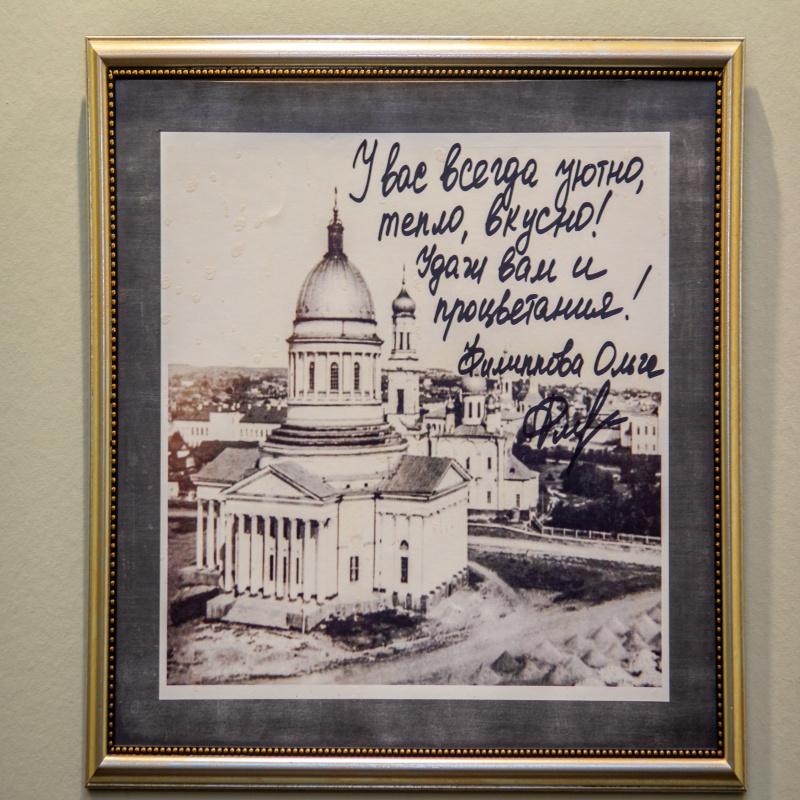 У вас всегда уютно,
тепло, вкусно!
Удачи вам и
процветания!
Филиппова Ольга